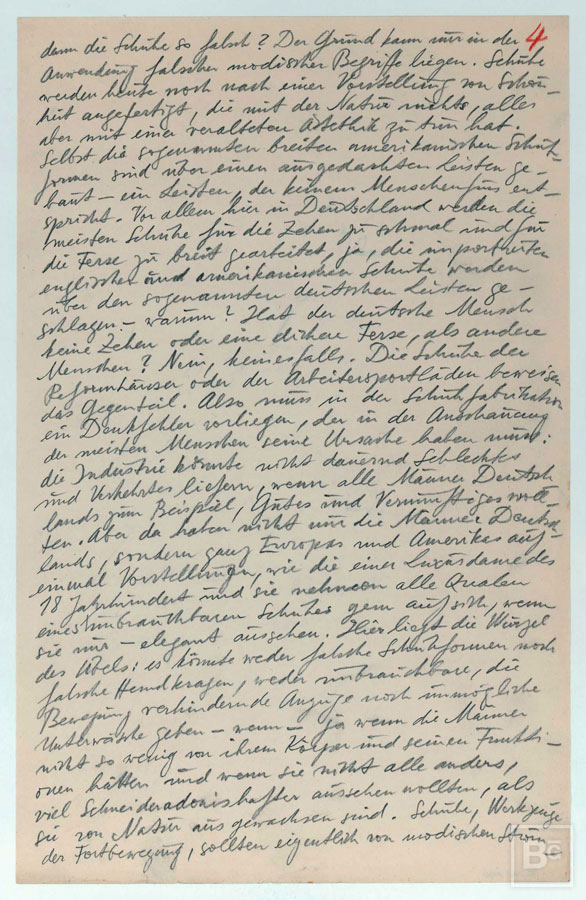 4
denn die Schuhe so falsch? Der Grund kann nur in der
Anwendung falscher modischer Begriffe liegen. Schuhe
werden heute noch nach einer Vorstellung von Schön-
heit angefertigt, die mit der Natur nichts, alles
aber mit einer veralteten Ästethik zu tun hat.
Selbst die sogenannten breiten amerikanischen Schuh-
formen sind über einen ausgedachten Leisten ge-
baut – ein Leisten, der keinem Menschenfuss ent-
spricht. Vor allem hier in Deutschland werden die
meisten Schuhe für die Zehen zu schmal und für
die Ferse zu breit gearbeitet, ja, die importierten
englischen und amerikanischen Schuhe werden
über den sogenannten deutschen Leisten ge-
schlagen – warum? Hat der deutsche Mensch
keine Zehen oder eine dickere Ferse, als andere
Menschen? Nein, keinesfalls. Die Schuhe der
Reformhäuser oder der Arbeitersportläden beweisen
das Gegenteil. Also muss in der Schuhfabrikation
ein Denkfehler vorliegen, der in der Anschauung
der meisten Menschen seine Ursache haben muss:
die Industrie könnte nicht dauernd Schlechtes
und Verkehrtes liefern, wenn alle Männer Deutsch-
lands zum Beispiel, Gutes und Vernünftiges woll-
ten. Aber da haben nicht nur die Männer Deutsch-
lands, sondern ganz Europas und Amerikas auf
einmal Vorstellungen, wie die einer Luxusdame des
18 Jahrhundert und sie nehmen alle Qualen
eines unbrauchbaren Schuhes gern auf sich, wenn
sie nur – elegant aussehen. Hier liegt die Wurzel
des Übels: es könnte weder falsche Schuhformen noch
falsche Hemdkragen, weder unbrauchbare, die
Bewegung verhindernde Anzüge noch unmögliche
Unterwäsche geben – wenn – ja wenn die Männer
nicht so wenig von ihrem Körper und seinen Funkti-
onen hätten und wenn sie nicht alle anders,
viel Schneideradonishafter aussehen wollten, als
sie von Natur aus gewachsen sind. Schuhe, Werkzeuge
der Fortbewegung, sollten eigentlich von modischen Ström-